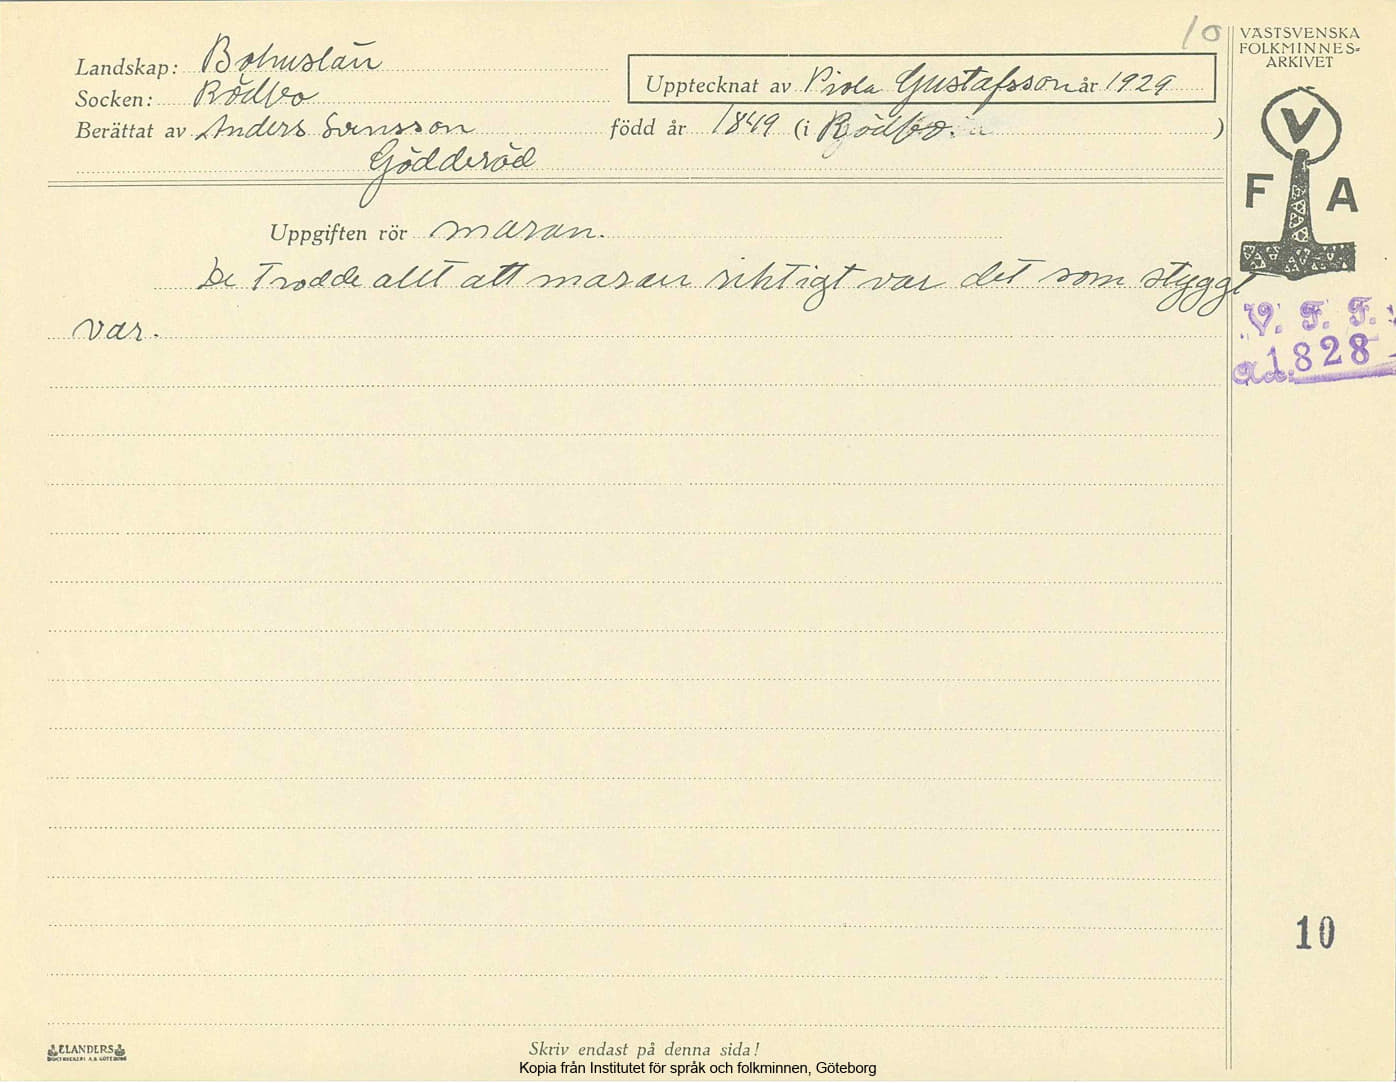 10
VÄSTSVENSKA
FOLKMINNES-
ARKIVET
Landskap: Bohuslän
Socken: Rödbo
Upptecknat av Viola Gustafsson år 1929
Berättat av Anders Svensson född år 1849 (i Rödbo. )
Gödderöd
V
F A
Uppgiften rör maran.
De trodde allt att maran riktigt var det som styggt
var.
V. F. F.
1828
10
ELANDERS
BOKTRYCKERI A.B. GÖTEBORG
Skriv endast på denna sida!
Kopia från Institutet för språk och folkminnen, Göteborg